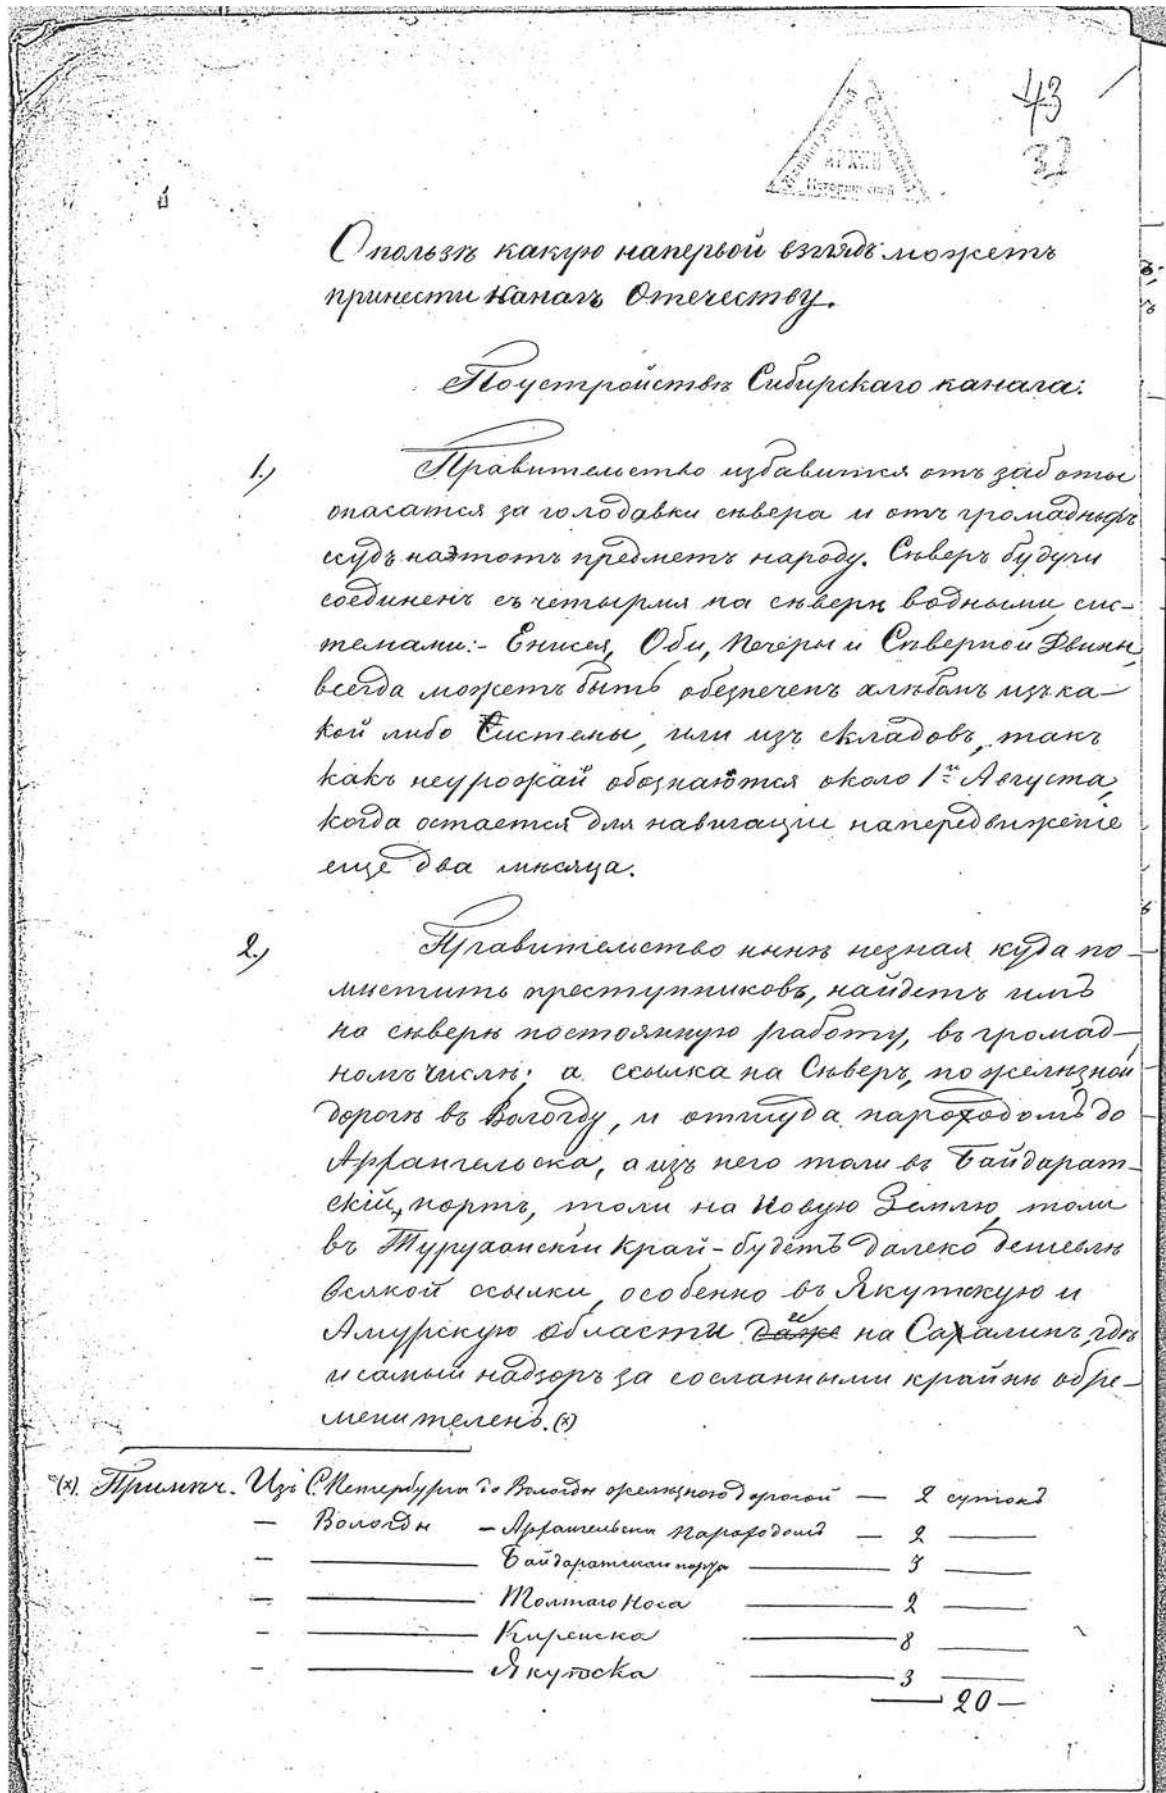 43
32
АРХИВ
О пользѣ какую на первой взглядъ можетъ
принести каналъ Отечеству.
По устройствѣ Сибирскаго канала:
1.) Правительство избавится отъ заботы
опасатся за голодовки сѣвера и отъ громадныхъ
ссудъ на этотъ предметъ народу. Сѣверъ будучи
соединенъ съ четырмя на сѣверѣ водными сис-
темами:- Енисея, Оби, Печеры и Сѣверной Двины,
всегда можетъ быть обезпеченъ хлѣбомъ изъ ка-
кой либо Системы, или изъ складовъ, такъ
какъ неурожай обознаются около 1го Августа,
когда остается для навигаціи на передвиженіе
еще два мѣсяца.
2.) Правительство нынѣ незная куда по-
мѣстить преступниковъ, найдетъ имъ
на сѣверѣ постоянную работу, въ громад-
номъ числѣ; а ссылка на Сѣверъ, по желѣзной
дорогѣ въ Вологду, и оттуда пароходомъ до
Архангельска, а изъ него толи въ Байдарат-
скій портъ, толи на Новую Землю, толи
въ Туруханскій край - будетъ далеко дешевлѣ
всякой ссылки, особенно въ Якутскую и
Амурскую области и на Сахалинъ, гдѣ
и самый надзоръ за сосланными крайнѣ обре-
менителенъ. (х)
(х). Примѣч. Изъ С.Петербурга до Вологды желѣзною дорогой — 2 сутокъ
— Вологды — Архангельска пароходомъ — 2 —
— — Байдаратскаго порта — 3 —
— — Толстаго Носа — 2 —
— — Киренска — 8 —
— — Якутска — 3 —
— 20 —